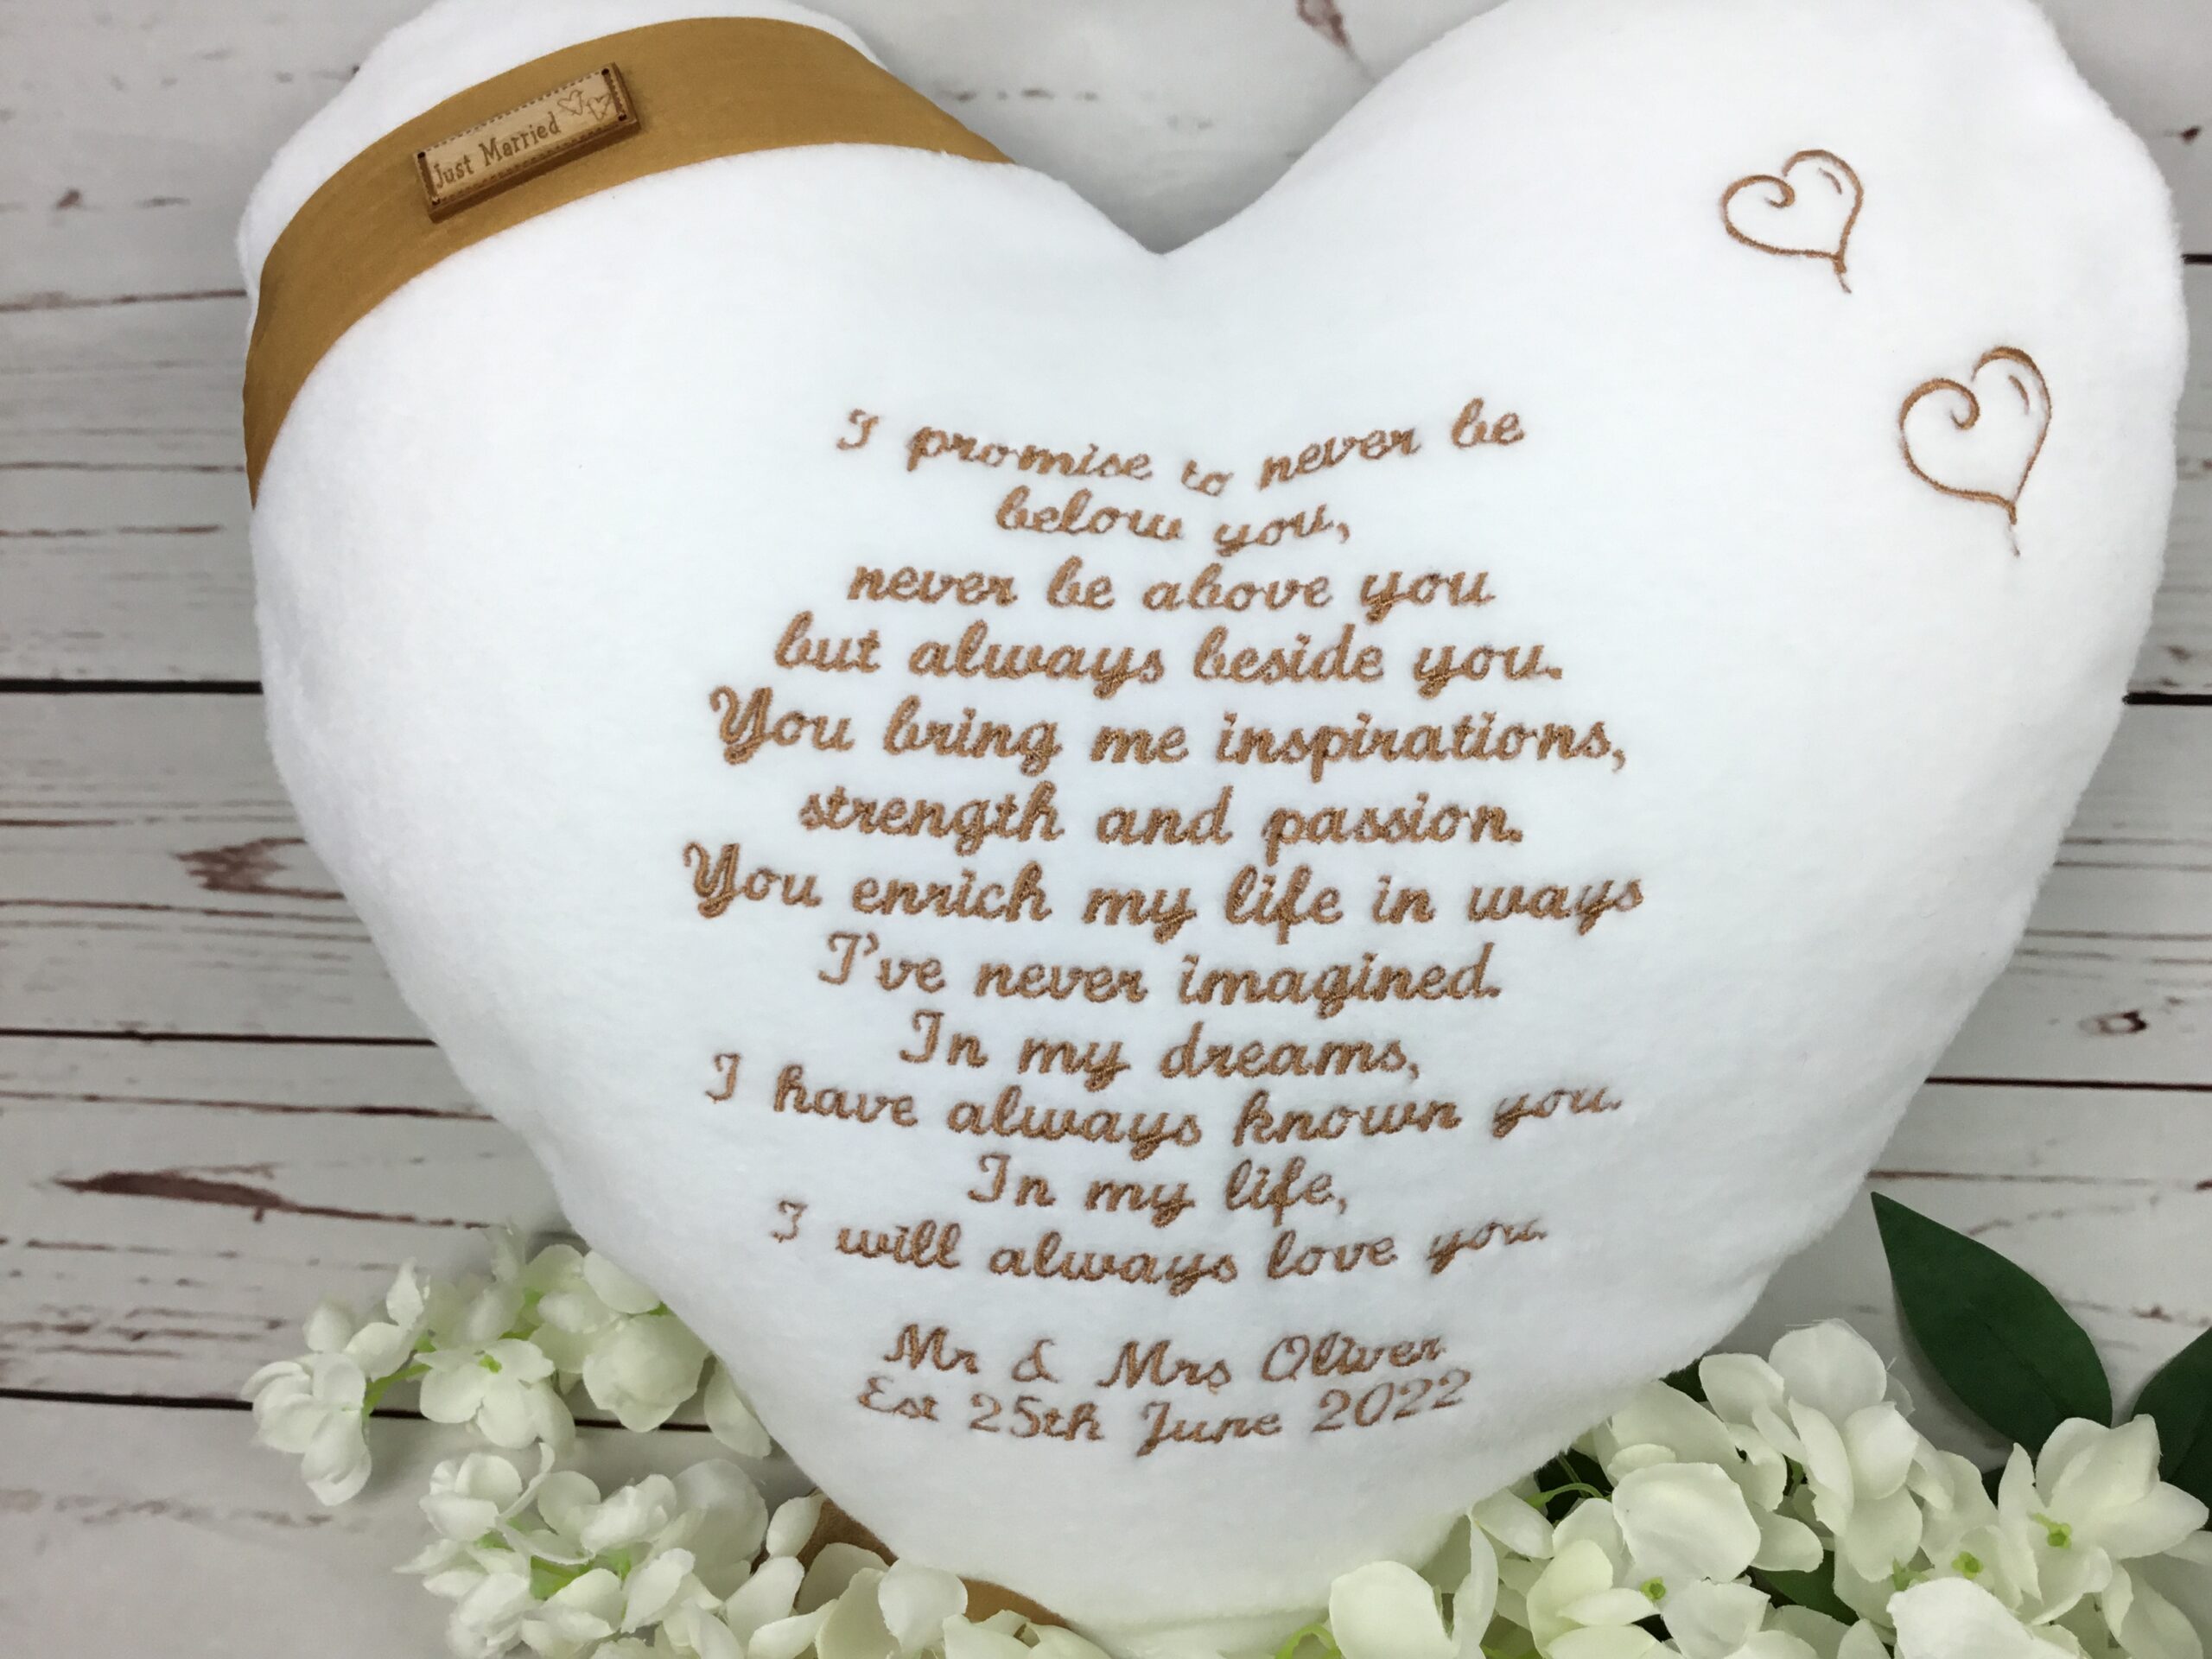 Just Married
I promise to never be
below you,
never be above you
but always beside you.
You bring me inspirations,
strength and passion.
You enrich my life in ways
I've never imagined.
In my dreams,
I have always known you.
In my life,
I will always love you.
Mr & Mrs Oliver
Est 25th June 2022